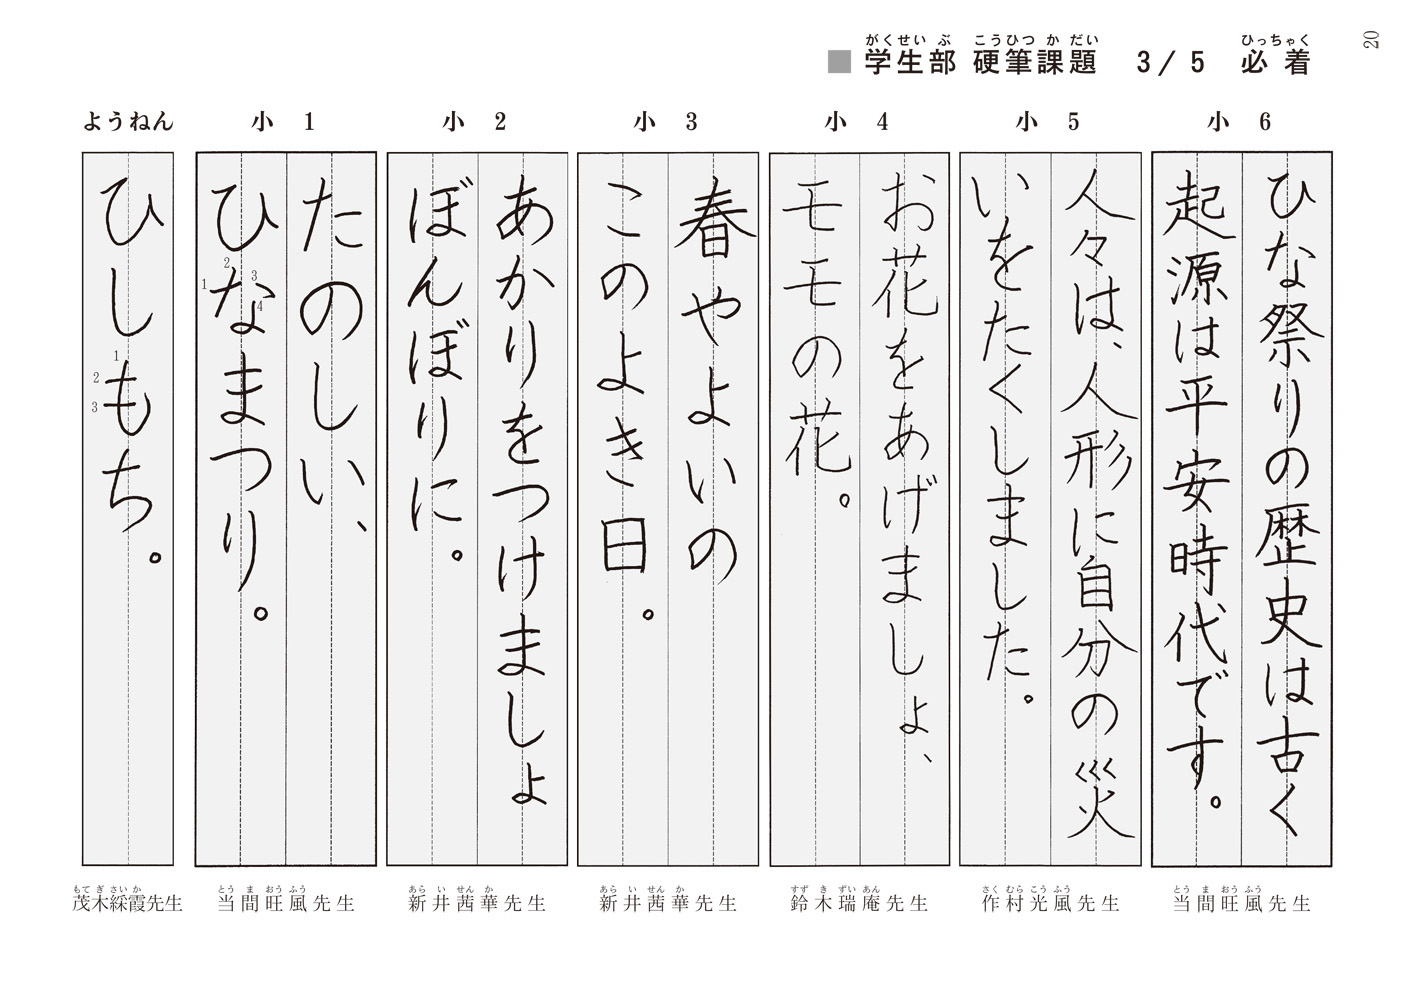 20
がくせいぶ こうひつかだい ひっちゃく
■学生部 硬筆課題 3/5 必着
小 6
ひな祭りの歴史は古く
起源は平安時代です。
とうまおうふう
当間旺風先生
小 5
人々は、人形に自分の災
いをたくしました。
さくむらこうふう
作村光風先生
小 4
お花をあげましょ、
モモの花。
すずきずいあん
鈴木瑞庵先生
小 3
春やよいの
このよき日。
あらいせんか
新井茜華先生
小 2
あかりをつけましょ
ぼんぼりに。
あらいせんか
新井茜華先生
小 1
たのしい、
ひなまつり。
1 2 3 4
とうまおうふう
当間旺風先生
ようねん
ひしもち。
1 2 3
もてぎさいか
茂木綵霞先生